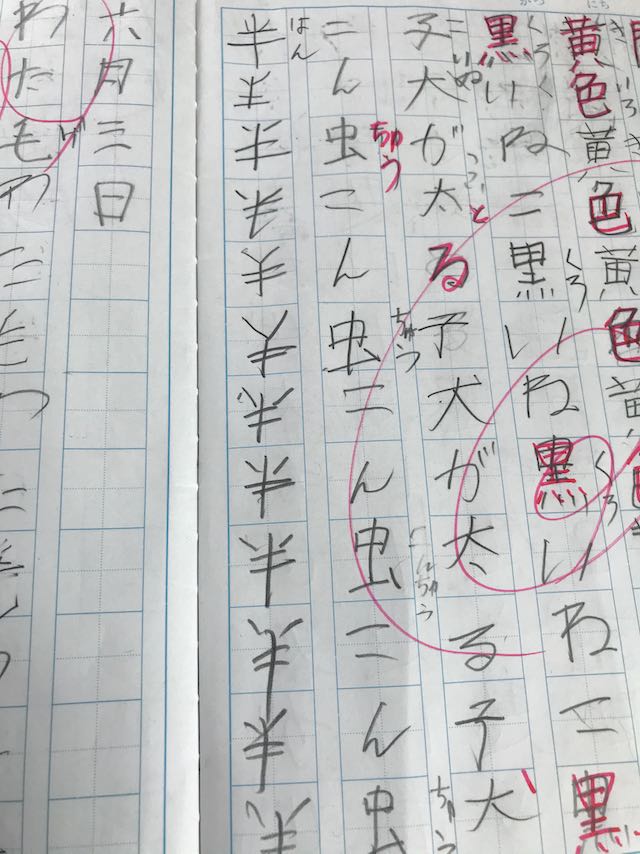 黄色黄色黄色黄
きいろ
黒いねこ黒いね黒いねこ黒
くろ
くろ
くろ
子大が太る子犬が太る子犬
こいぬ
と
こん虫こん虫こん虫こん虫
ちゅう
ちゅう
こんちゅう
ちゅう
半半半半半半半半半半半半
はん
六月三日
わた毛わ
げ